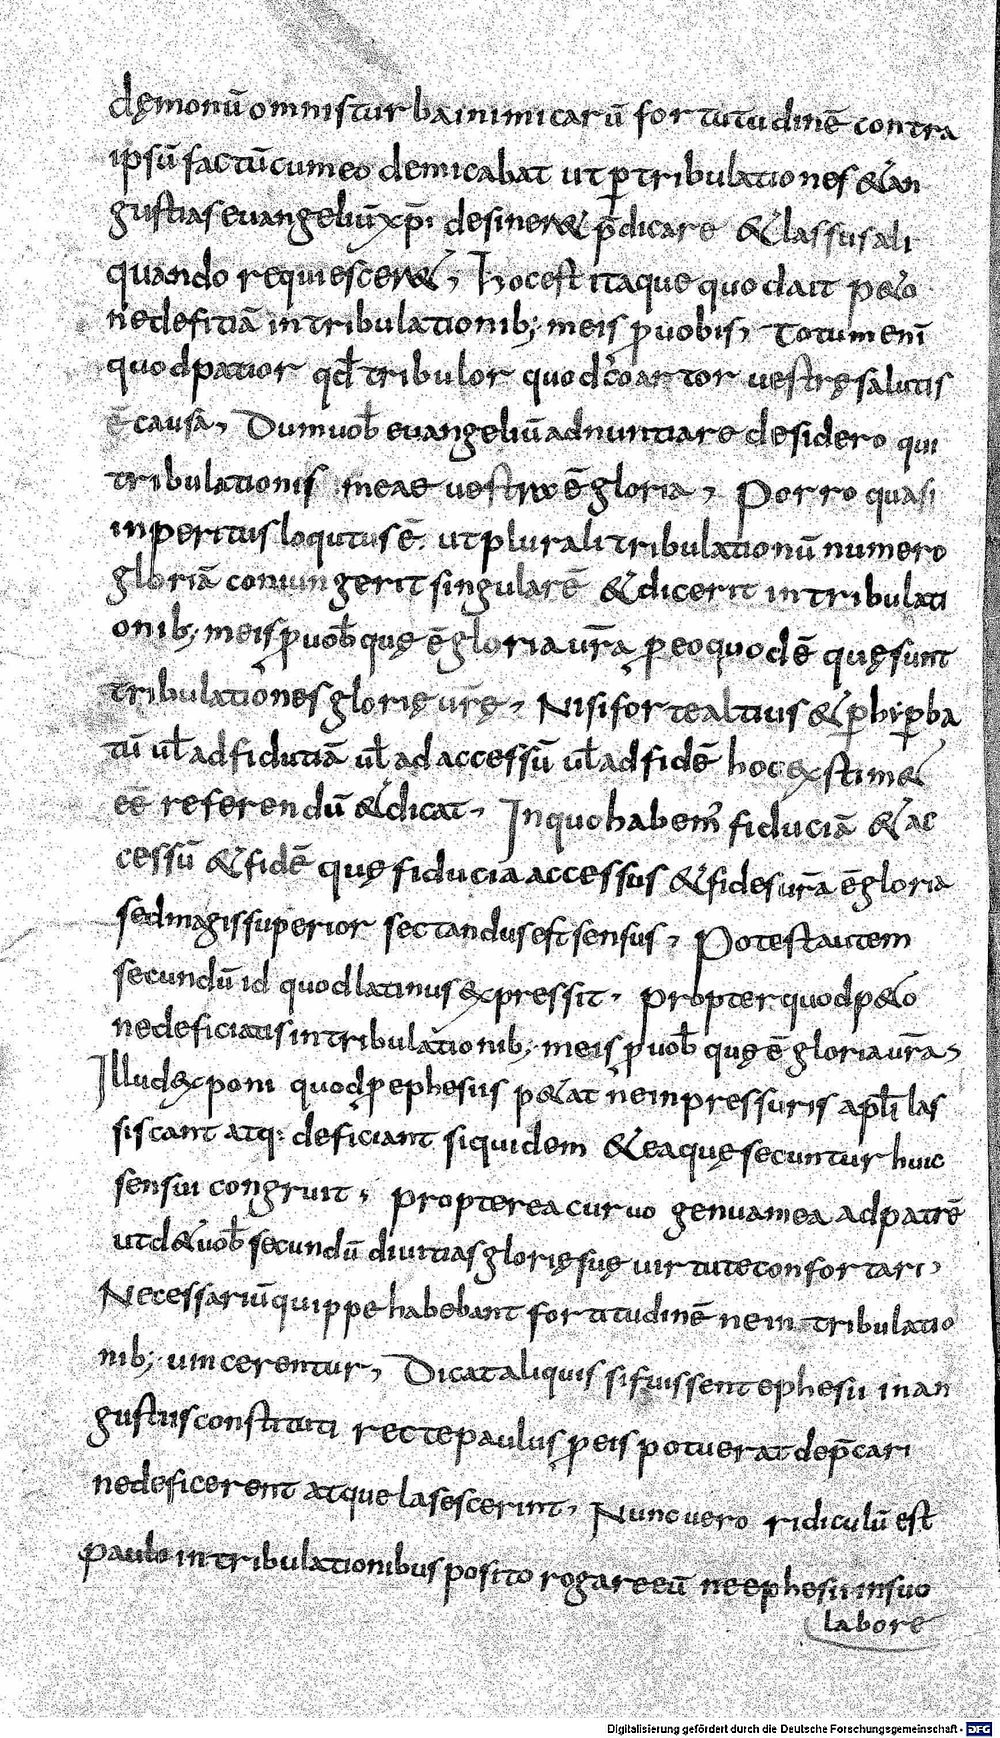 dęmonū omnis turba inimicarū fortitudinē contra
ipsū factū cum eo demicabat ut p tribulationes & an
gustias evangeliū xp̄i desiner& p̄dicare & lassus ali
quando requiescer&, Hoc est itaque quod ait p&o
ne defitiā in tribulationib; meis p vobis, Totum enī
quod patior qd̄ tribulor quod coartor vestrę salutis
ē causa, Dum vob̄ evangeliū adnuntiare desidero qui
tribulationis meae vestra ē gloria, Porro quasi
inperitus loqutus ē. ut plurali tribulationū numero
gloriā coniungerit singularē & dicerit in tribulati
onib; meis p vob̄ quę ē gloria vr̄a p eo quod ē quę sunt
tribulationes glorię vr̄ę, Nisi forte altius & p hyp ba
tū vl̄ ad fidutiā vl̄ ad accessū vl̄ ad fidē hoc exstim&
eē referendū & dicat, In quo habem' fiduciā & ac
cessū & fidē quę fiducia accessus & fides vr̄a ē gloria
sed magis superior sectandus est sensus, Potest autem
secundū id quod latinus expressit, propter quod p&o
ne deficiatis in tribulationib; meis p vob̄ quę ē gloria vr̄a,
Illud exponi quod p ephesiis p&at ne in pressuris apl̄i las
siscant atq: deficiant siquidem & ea quę secuntur huic
sensui congruit, propterea curvo genua mea ad patrē
ut d& vob̄ secundū divitias glorię suę virtute confortari,
Necessariū quippe habebant fortitudinē ne in tribulatio
nib; vincerentur, Dicat aliquis si fuissent ephesii in an
gustiis constituti recte paulus p eis potuerat dep̄cari
ne deficerent atque lasescerint, Nunc vero ridiculū est
paulo in tribulationibus posito rogare eū ne ephesii in suo
labore
Digitalisierung gefördert durch die Deutsche Forschungsgemeinschaft - DFG